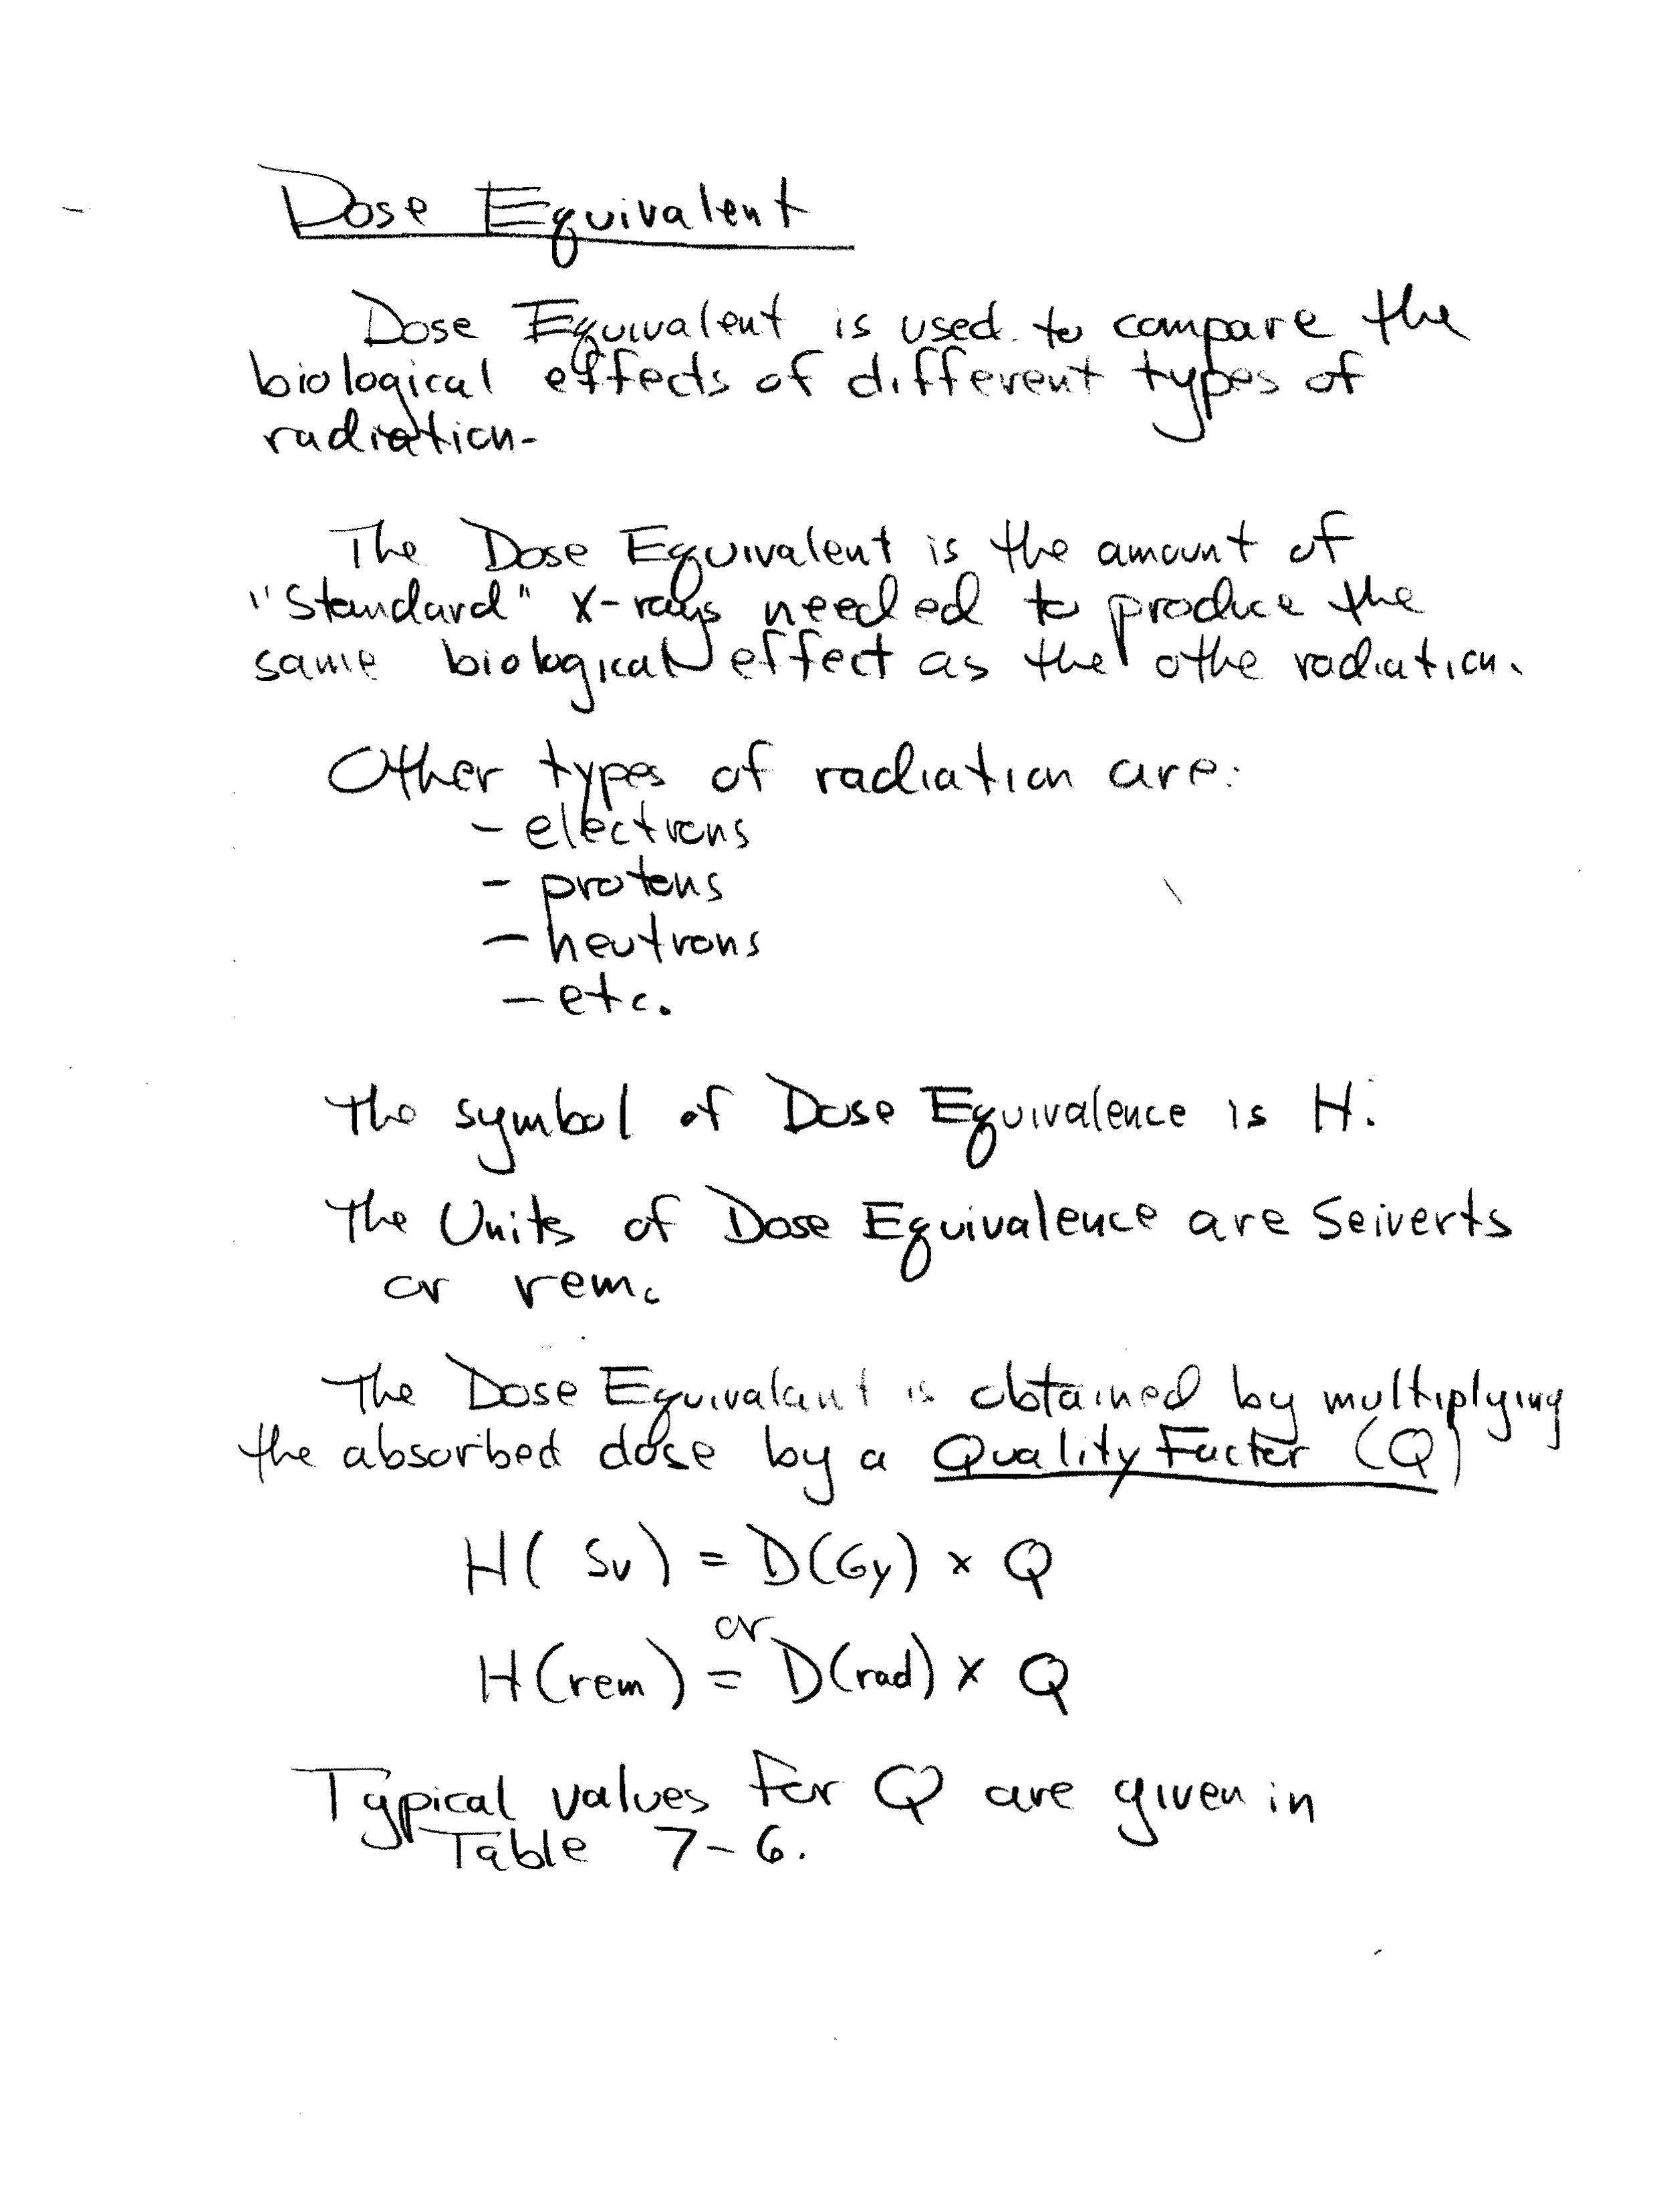 Dose Equivalent
Dose Equivalent is used to compare the
biological effects of different types of
radiation-
The Dose Equivalent is the amount of
"Standard" x-rays needed to produce the
same biological effect as the othe radiation.
Other types of radiation are:
- electrons
- protons
- neutrons
- etc.
The symbol of Dose Equivalence is H.
The Units of Dose Equivalence are Seiverts
or rem.
The Dose Equivalant is obtained by multiplying
the absorbed dose by a Quality Factor (Q)
H( Sv ) = D(Gy) x Q
or
H(rem) = D(rad) x Q
Typical values for Q are given in
Table 7-6.